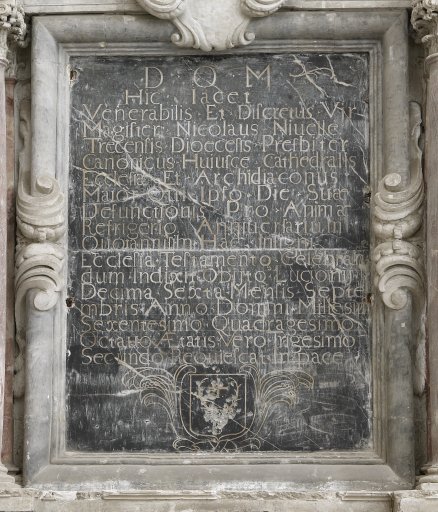 D O M
Hic Iacet
Venerabilis Et Discretus Vir
Magister Nicolaus
Trecensis Diocesis Presbiter
Canonicus Huiusce Cathedralis
Ecclesiæ Et Archidiaconus
Qui Ipso Die Suæ
Defunctionis Pro Anima
Refrigerio Anniversarium
In
Ecclesia Testamento Celebran
dum Indixit Obiit
Decima Sexta Mensis Septe
mbris Anno Domini Millesim
Sexentesimo Quadragesimo
Octauo Ætatis Vero Trigesimo
Secundo Requiescat In Pace